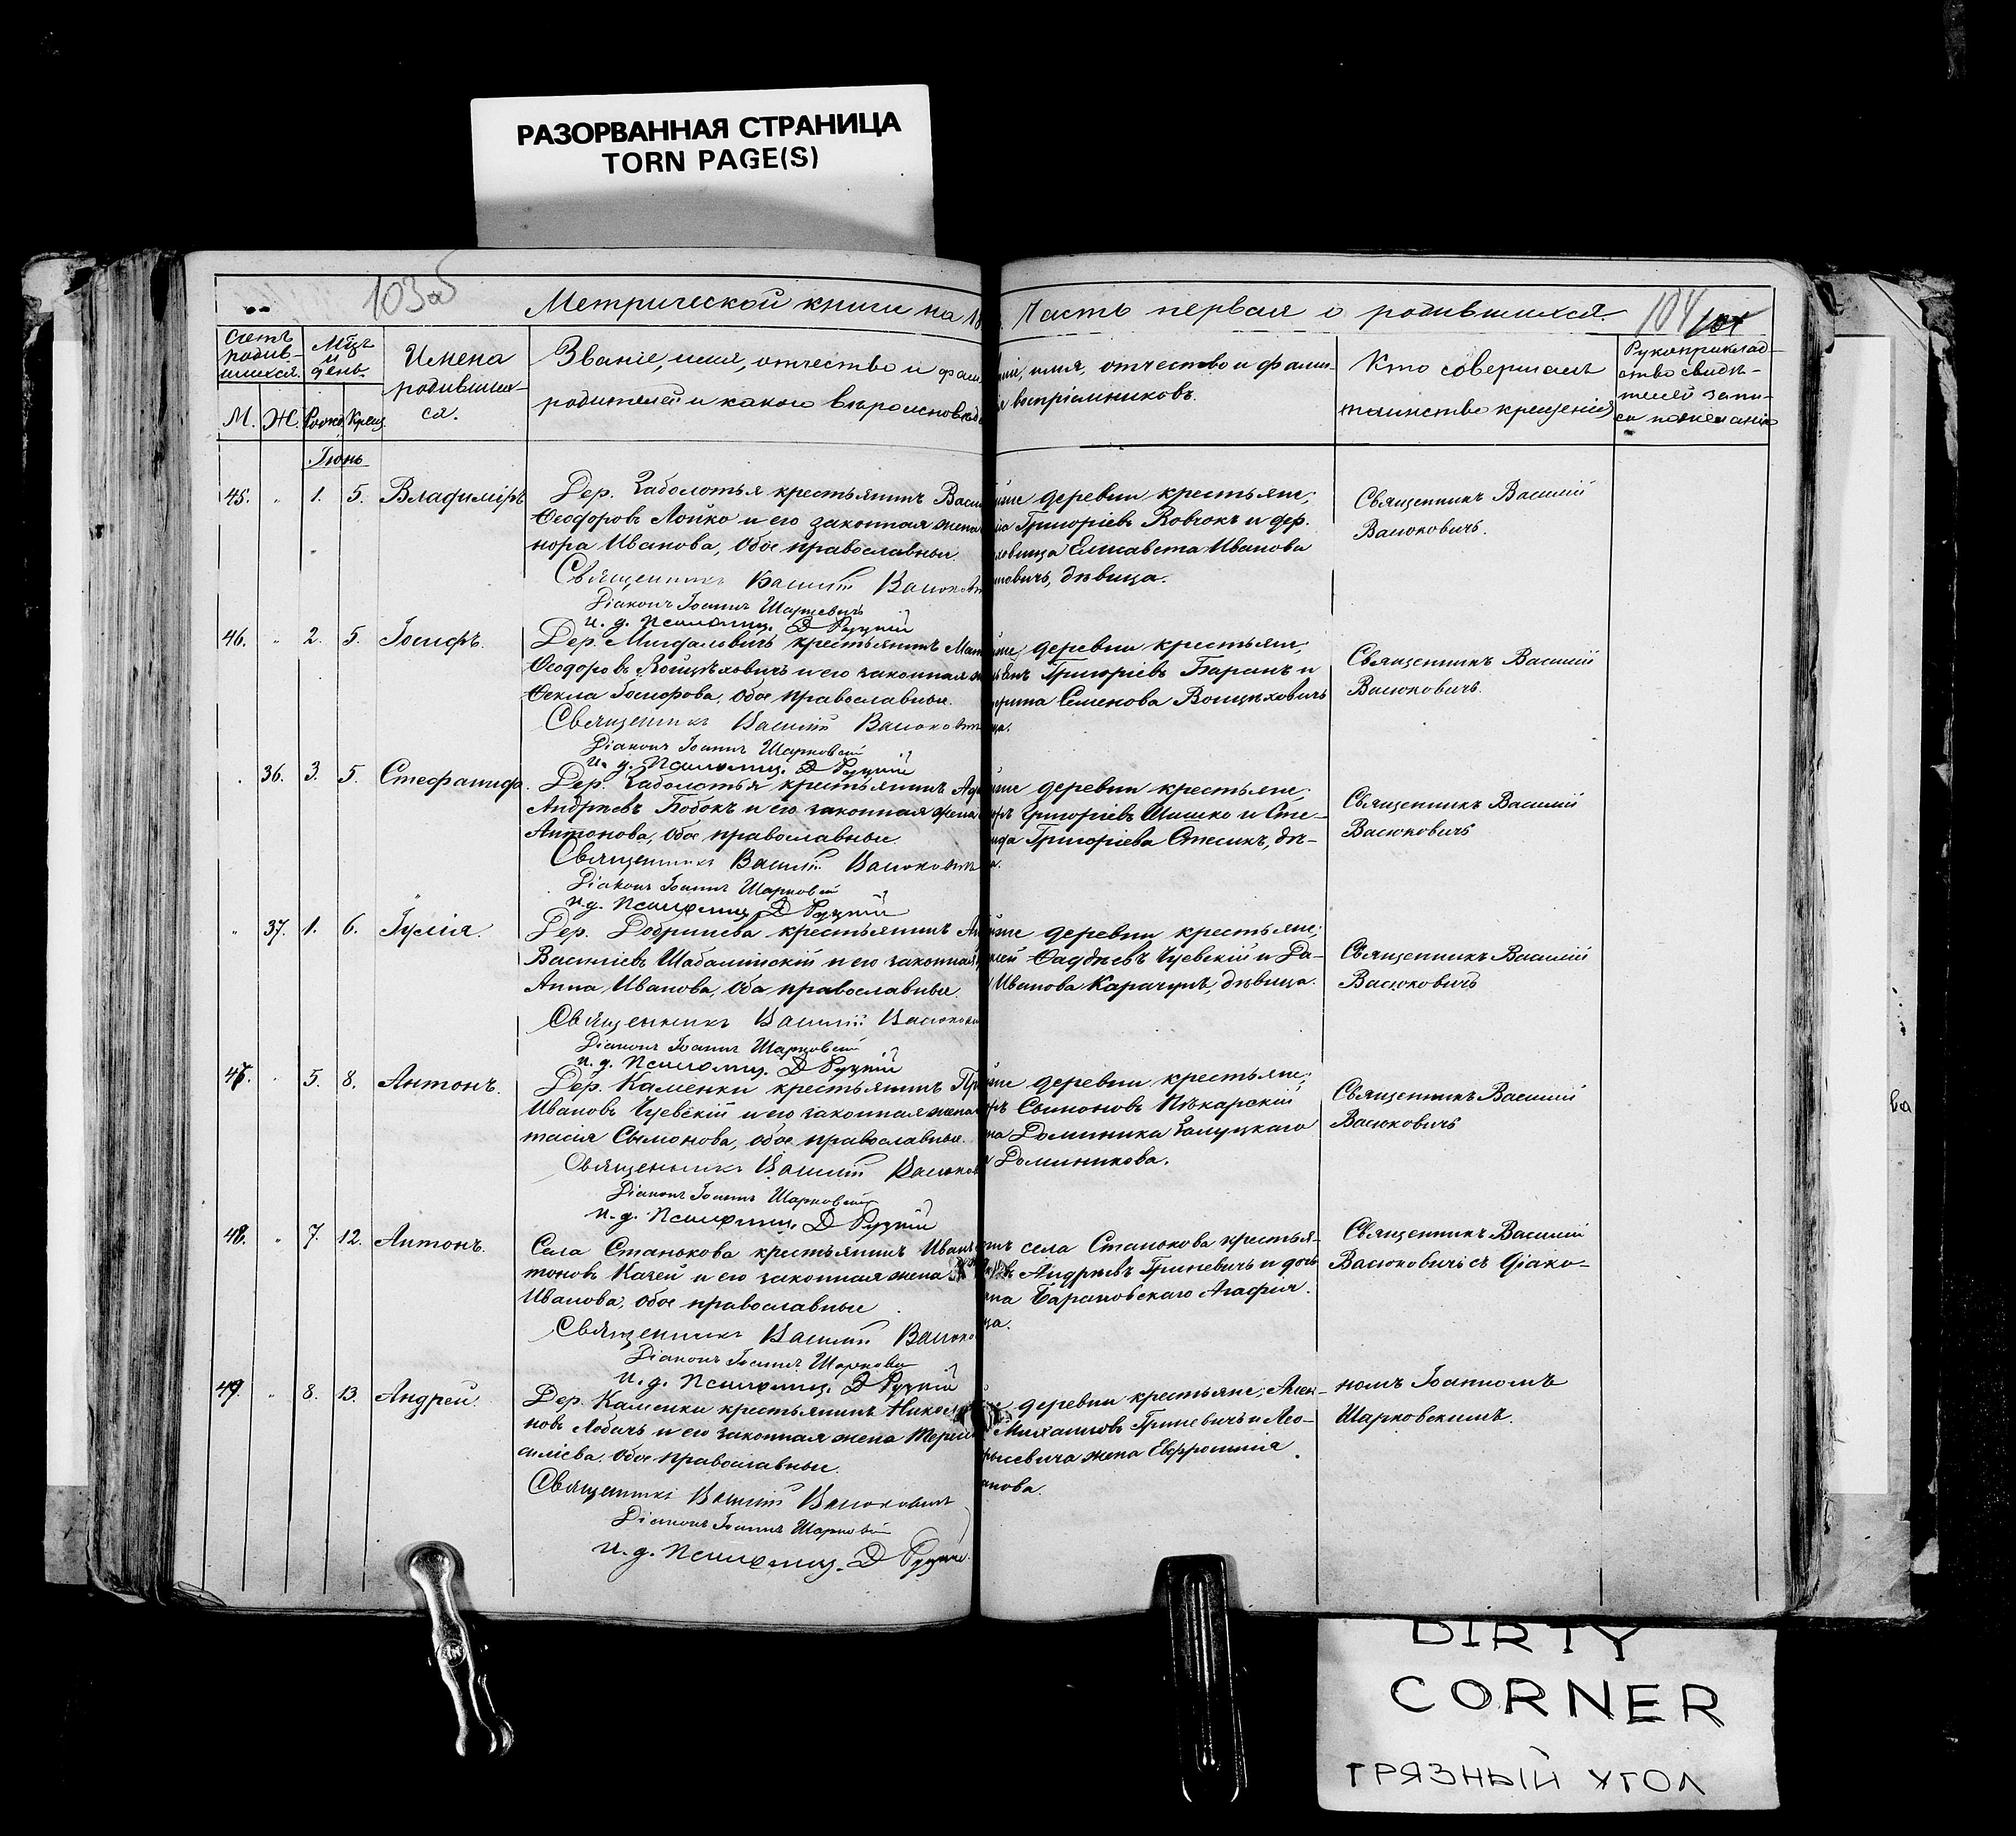 РАЗОРВАННАЯ СТРАНИЦА
TORN PAGE(S)
103об
Метрической книги на 18
Часть первая о родившихся.
104
Счетъ родив-шихся.
М. Ж.
Мцъ и день.
Рожд. Крещ.
Имена родивших-ся.
Званіе, имя, отчество и фам
родителей и какого вѣроисповѣд
ніе, имя, отчество и фами-
я воспріемниковъ.
Кто совершалъ
таинство крещенія
Рукоприклад-
ство свидѣ-
телей запи-
си по желанію
Іюнь
45. " 1. 5. Владиміръ
Дер. Заболотья крестьянинъ Васи
Ѳеодоровъ Лойко и его законная жена
нора Иванова, Обое православные.
Священникъ Василій Васюкович
Діаконъ Іоаннъ Шарковскій
и. д. Псаломщ. Д Руцкій
деревни крестьяне;
Григоріевъ Ковчокъ и дер.
Елисавета Иванова
новичъ, дѣвица.
Священникъ Василій
Васюковичъ.
46. " 2. 5. Іосифъ.
Дер. крестьянинъ Мат
Ѳеодоровъ Войцѣховичъ и его законная ж
Ѳекла Іосифова, Обое православные.
Священникъ Василій Васюкович
Діаконъ Іоаннъ Шарковскій
и. д. Псаломщ. Д Руцкій
деревни крестьяне,
Григоріевъ Баранъ и
Семенова Войцѣховичъ
ца.
Священникъ Василій
Васюковичъ.
36. 3. 5. Стефанида.
Дер. Заболотья крестьянинъ
Андреевъ Бобокъ и его законная жена
Антонова, Обое православные.
Священникъ Василій Васюкович
Діаконъ Іоаннъ Шарковскій
и. д. Псаломщ. Д Руцкій
деревни крестьяне;
Григоріевъ Шишко и Сте-
нида Григоріева Стесикъ, дѣ-
а.
Священникъ Василій
Васюковичъ
" 37. 1. 6. Іулія.
Дер. Добринева крестьянинъ
Васильевъ Шабалинскій и его законная
Анна Иванова, Оба православные.
Священникъ Василій Васюкови
Діаконъ Іоаннъ Шарковскій
и. д. Псаломщ. Д Руцкій
деревни крестьяне;
Ѳаддѣевъ Чуевскій и Да-
Иванова Карачунъ, дѣвица.
Священникъ Василій
Васюковичъ
47. " 5. 8. Антонъ.
Дер. Каменки крестьянинъ
Ивановъ Чуевскій и его законная жена
тасія Сымонова, обое православные.
Священникъ Василій Васюков
Діаконъ Іоаннъ Шарковскій
и. д. Псаломщ. Д Руцкій
деревни крестьяне;
Сымоновъ Пѣкарскій
на Доминика Залуцкаго
Доминикова.
Священникъ Василій
Васюковичъ
48. " 7. 12. Антонъ.
Села Станькова крестьянинъ Иванъ
тоновъ Качей и его законная жена
Иванова, Обое православные
Священникъ Василій Васюко
Діаконъ Іоаннъ Шарковскій
и. д. Псаломщ. Д Руцкій
села Станькова крестья-
Андреевъ Гриневичъ и дочь
Барановскаго Агафія.
ца.
Священникъ Василій
Васюковичъ съ Діако-
49. " 8. 13. Андрей.
Дер. Каменки крестьянинъ Никол
новъ Лобачъ и его законная жена
силіева, Обое православные.
Священникъ Василій Васюковичъ
Діаконъ Іоаннъ Шарковскій
и. д. Псаломщ. Д Руцкій
деревни крестьяне; Алек-
Михаиловъ Гриневичъ и Лео-
невича жена Евфросинія
анова.
номъ Іоанномъ
Шарковскимъ.
ва
DIRTY
CORNER
ГРЯЗНЫЙ УГОЛ